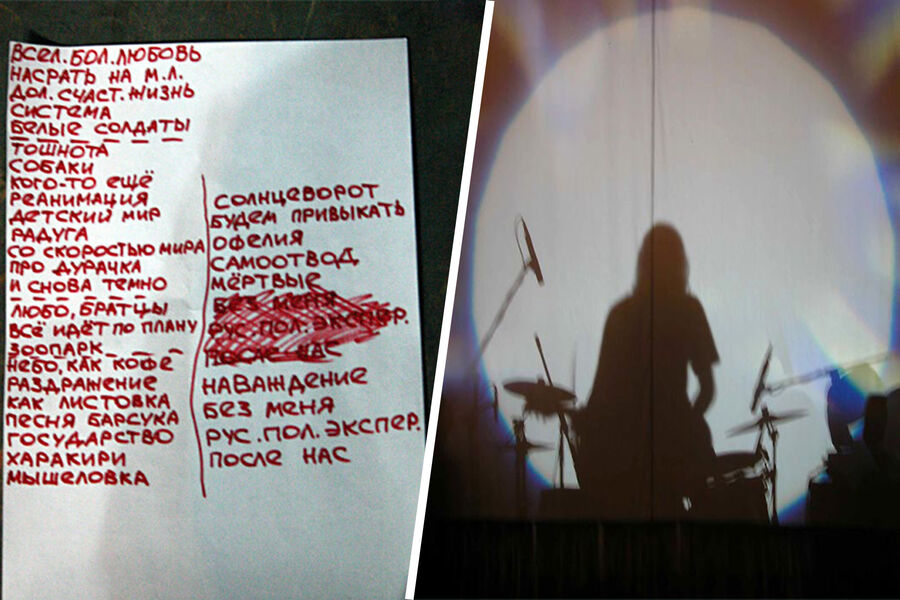 ВСЕЛ.БОЛ.ЛЮБОВЬ
НАСРАТЬ НА М.Л.
ДОЛ.СЧАСТ.ЖИЗНЬ
СИСТЕМА
БЕЛЫЕ СОЛДАТЫ
ТОШНОТА
СОБАКИ
КОГО-ТО ЕЩЁ
РЕАНИМАЦИЯ
ДЕТСКИЙ МИР
РАДУГА
СО СКОРОСТЬЮ МИРА
ПРО ДУРАЧКА
И СНОВА ТЕМНО
ЛЮБО, БРАТЦЫ
ВСЁ ИДЁТ ПО ПЛАНУ
ЗООПАРК
НЕБО, КАК КОФЕ
РАЗДРАЖЕНИЕ
КАК ЛИСТОВКА
ПЕСНЯ БАРСУКА
ГОСУДАРСТВО
ХАРАКИРИ
МЫШЕЛОВКА
СОЛНЦЕВОРОТ
БУДЕМ ПРИВЫКАТЬ
ОФЕЛИЯ
САМООТВОД
МЁРТВЫЕ
БЕЗ МЕНЯ
РУС.ПОЛ.ЭКСПЕР.
ПОСЛЕ НАС
НАВАЖДЕНИЕ
БЕЗ МЕНЯ
РУС.ПОЛ.ЭКСПЕР.
ПОСЛЕ НАС